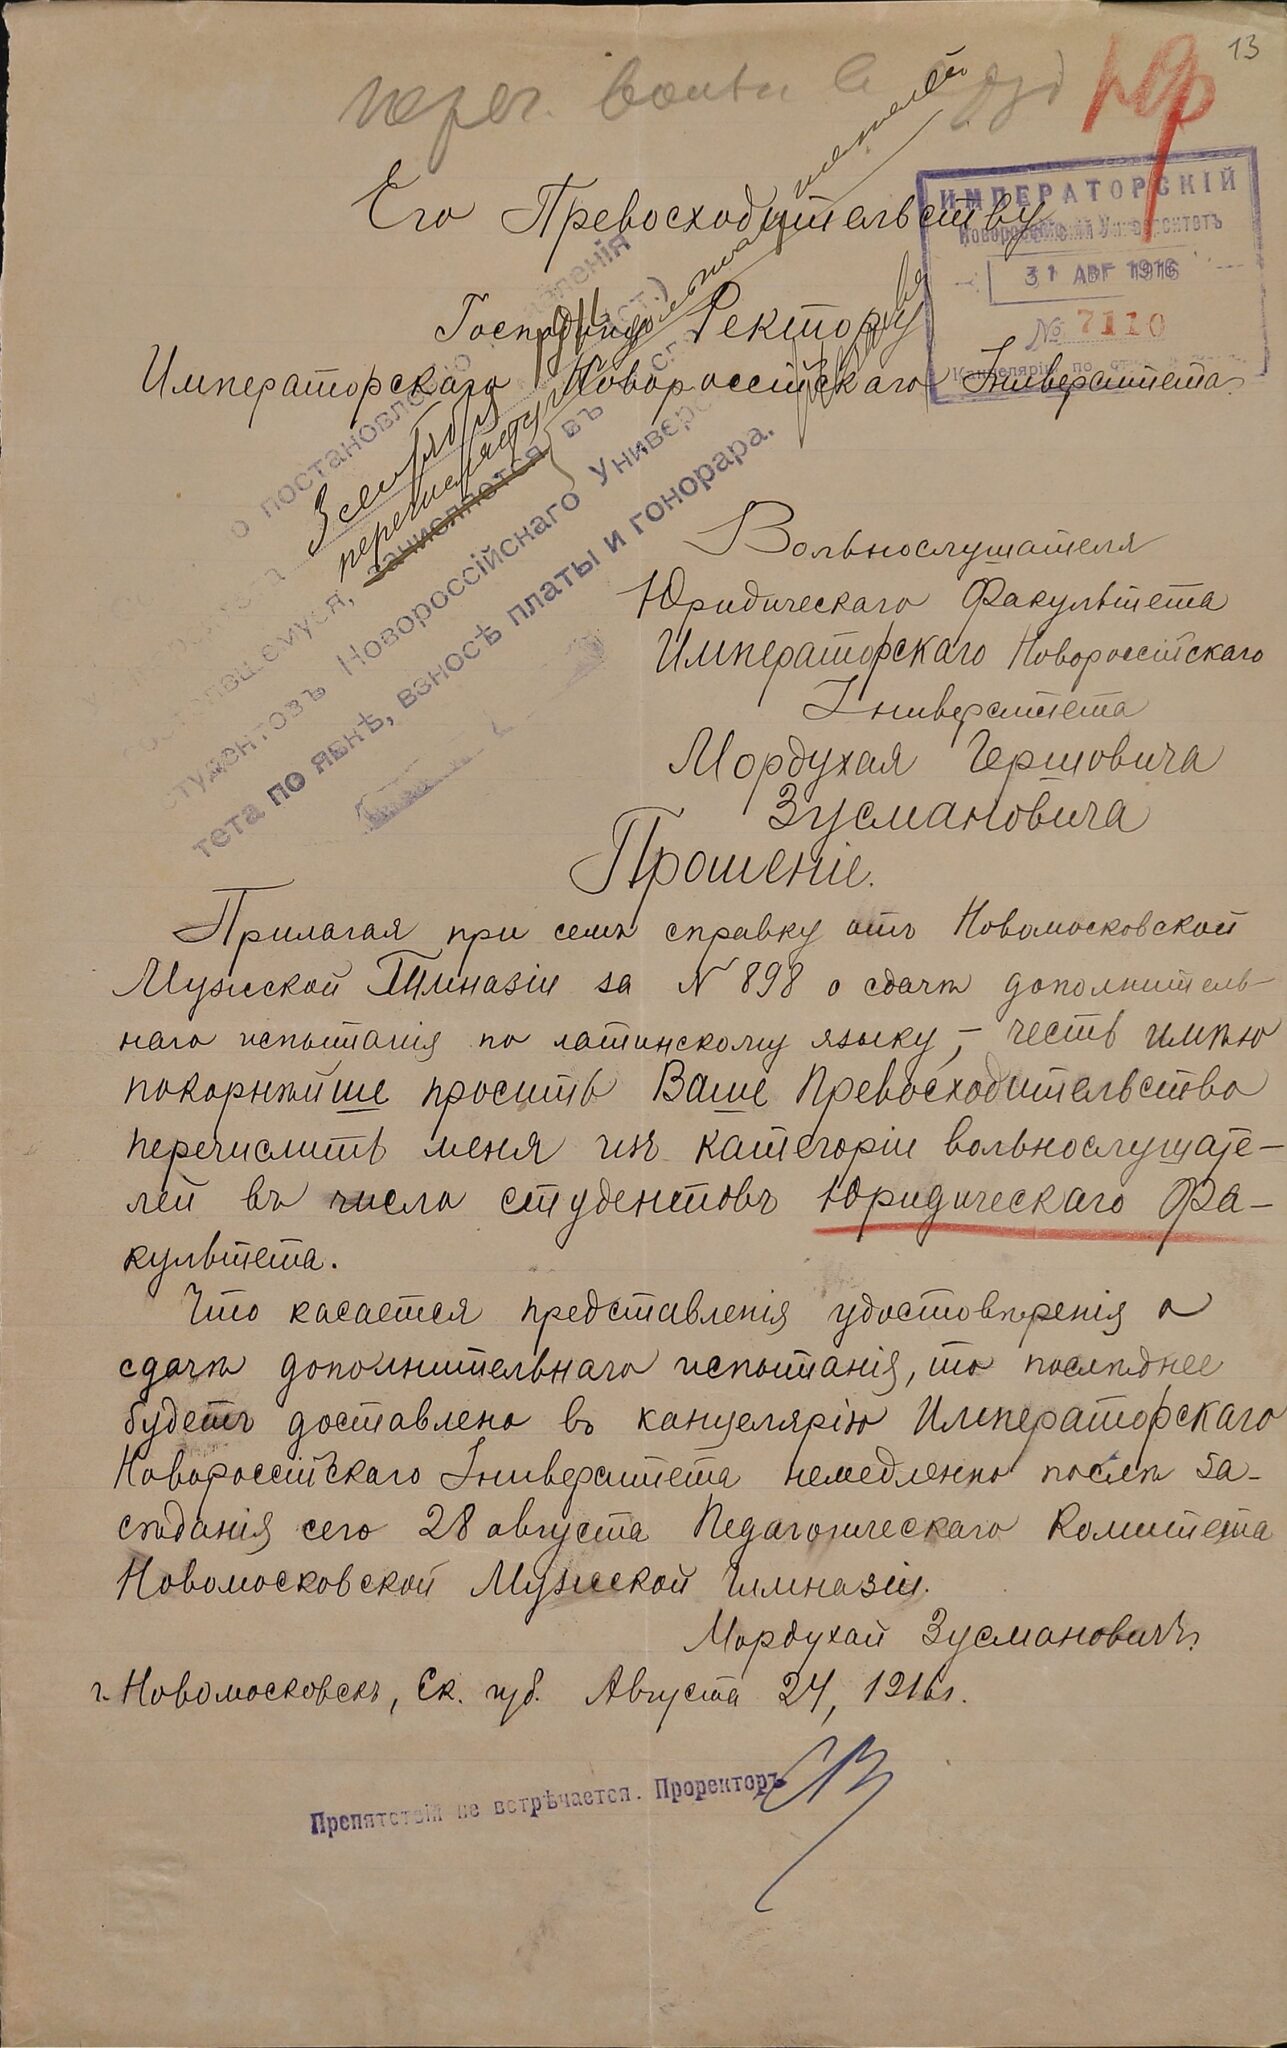 13
Его Превосходительству
ИМПЕРАТОРСКІЙ
Новороссійскій Университетъ
31 АВГ 1916
№ 7110
Господину Ректору
Императорскаго Новороссійскаго Университета
перечисляется
зачисляется въ
студентовъ Новороссійскаго Универси
тета по явкѣ, взносѣ платы и гонорара.
Вольнослушателя
Юридическаго Факультета
Императорскаго Новороссійскаго
Университета
Мордухая Гершовича
Зусмановича
Прошеніе.
Прилагая при семъ справку отъ Новомосковской
Мужской Гимназіи за N 898 о сдачѣ дополнитель-
наго испытанія по латинскому языку, – честь имѣю
покорнѣйше просить Ваше Превосходительство
перечислить меня изъ категоріи вольнослушате-
лей въ число студентовъ Юридическаго Фа-
культета.
Что касается представленія удостовѣренія о
сдачѣ дополнительнаго испытанія, то послѣднее
будетъ доставлено въ канцелярію Императорскаго
Новороссійскаго Университета немедленно послѣ за-
сѣданія сего 28 августа Педагогическаго Комитета
Новомосковской Мужской Гимназіи.
Мордухай Зусмановичъ.
г. Новомосковскъ, Ек. губ. Августа 24, 1916 г.
Препятствій не встрѣчается. Проректоръ